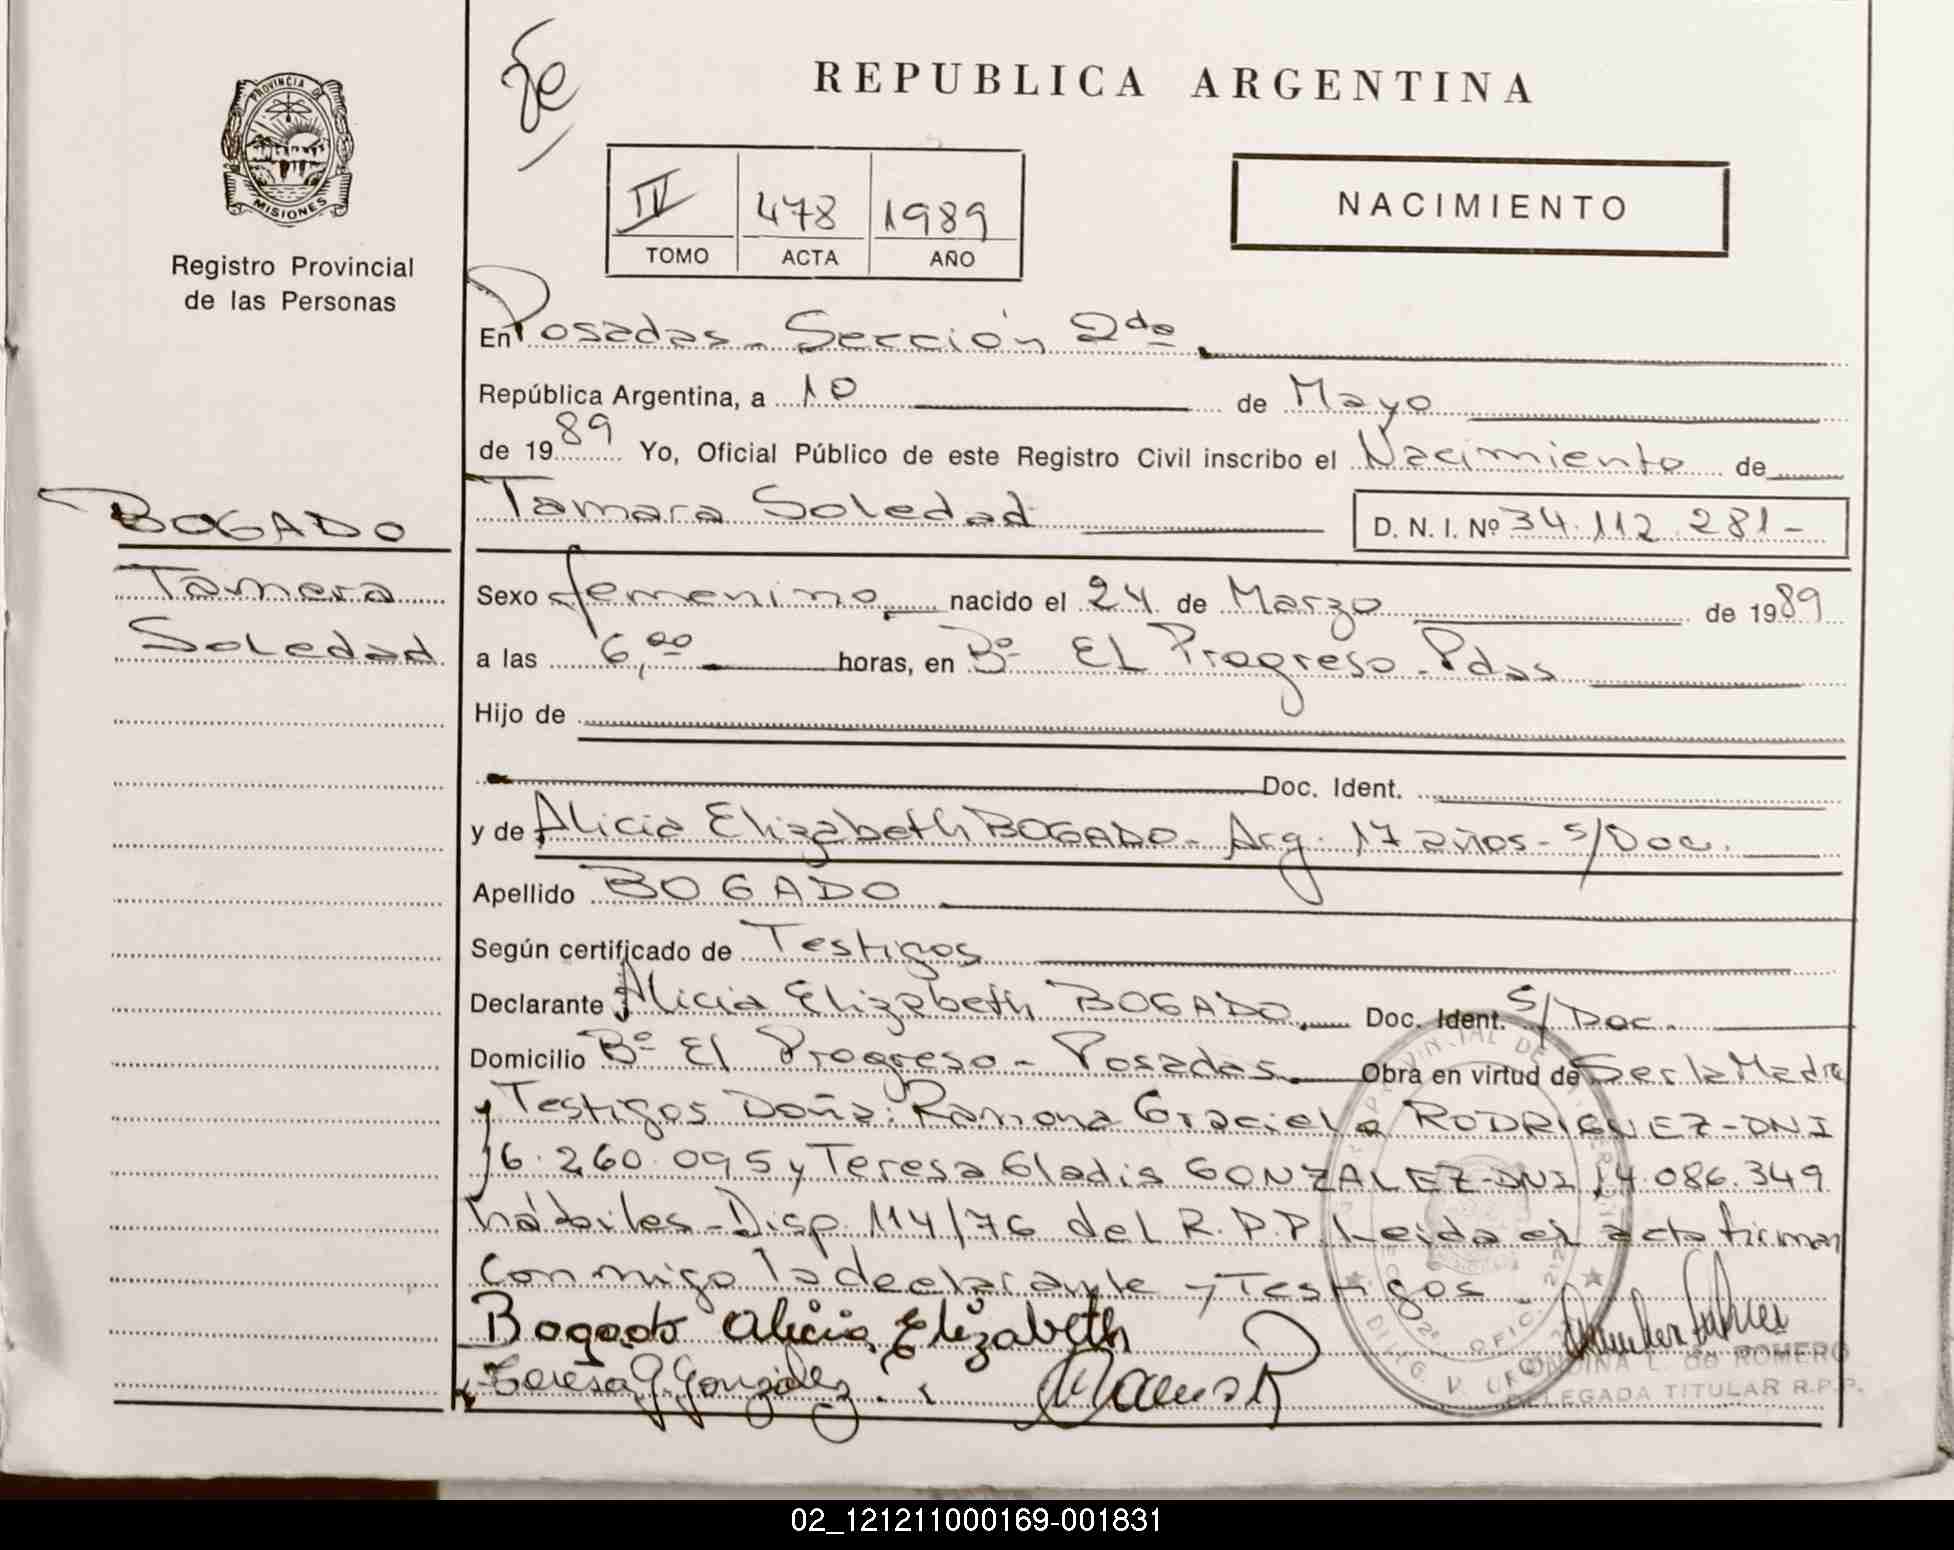 REPUBLICA ARGENTINA
PROVINCIA DE
MISIONES
Registro Provincial
de las Personas
IV 478 1989
TOMO ACTA AÑO
NACIMIENTO
En Posadas - Sección 2da
República Argentina, a 10 de Mayo
de 1989 Yo, Oficial Público de este Registro Civil inscribo el Nacimiento de
Tamara Soledad D. N. I. Nº 34.112.281-
BOGADO
Tamara
Soledad
Sexo femenino nacido el 24 de Marzo de 1989
a las 6,00 horas, en Bº EL Progreso - Pdas
Hijo de
Doc. Ident.
y de Alicia Elizabeth BOGADO - Arg. 17 años - s/Doc.
Apellido BOGADO
Según certificado de Testigos
Declarante Alicia Elizabeth BOGADO. Doc. Ident. S/Doc.
Domicilio Bº El Progreso - Posadas. Obra en virtud de Ser la Madre
y Testigos Doña: Ramona Graciela RODRIGUEZ - DNI
16.260.095 y Teresa Gladis GONZALEZ - DNI 14.086.349
hábiles - Disp. 114/76 del R.P.P. Leida el acta firman
conmigo la declarante y Testigos
Bogado Alicia Elizabeth
Teresa G. González
L. de ROMERO
DELEGADA TITULAR R.P.P.
02_121211000169-001831